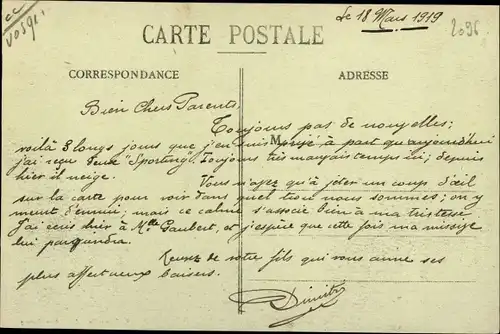 cc
Vosges
le 18 Mars 1919
2096
CARTE POSTALE
CORRESPONDANCE
ADRESSE
Bien Chers Parents,
Toujours pas de nouvelles;
voilà 3 longs jours que j'en suis privé à part qu'aujourd'hui
j'ai reçu "Sporting". Toujours très mauvais temps ici; depuis
hier il neige.
M
Vous n'avez qu'à jeter un coup d'œil
sur la carte pour voir dans quel trou nous sommes; on y
meurt d'ennui; mais ce calme s'associe bien à ma tristesse
J'ai écris hier à Mlle Paubert, et j'espère que cette fois ma missive
lui parviendra.
Recevez de votre fils qui vous aime ses
plus affectueux baisers.
Dimitri